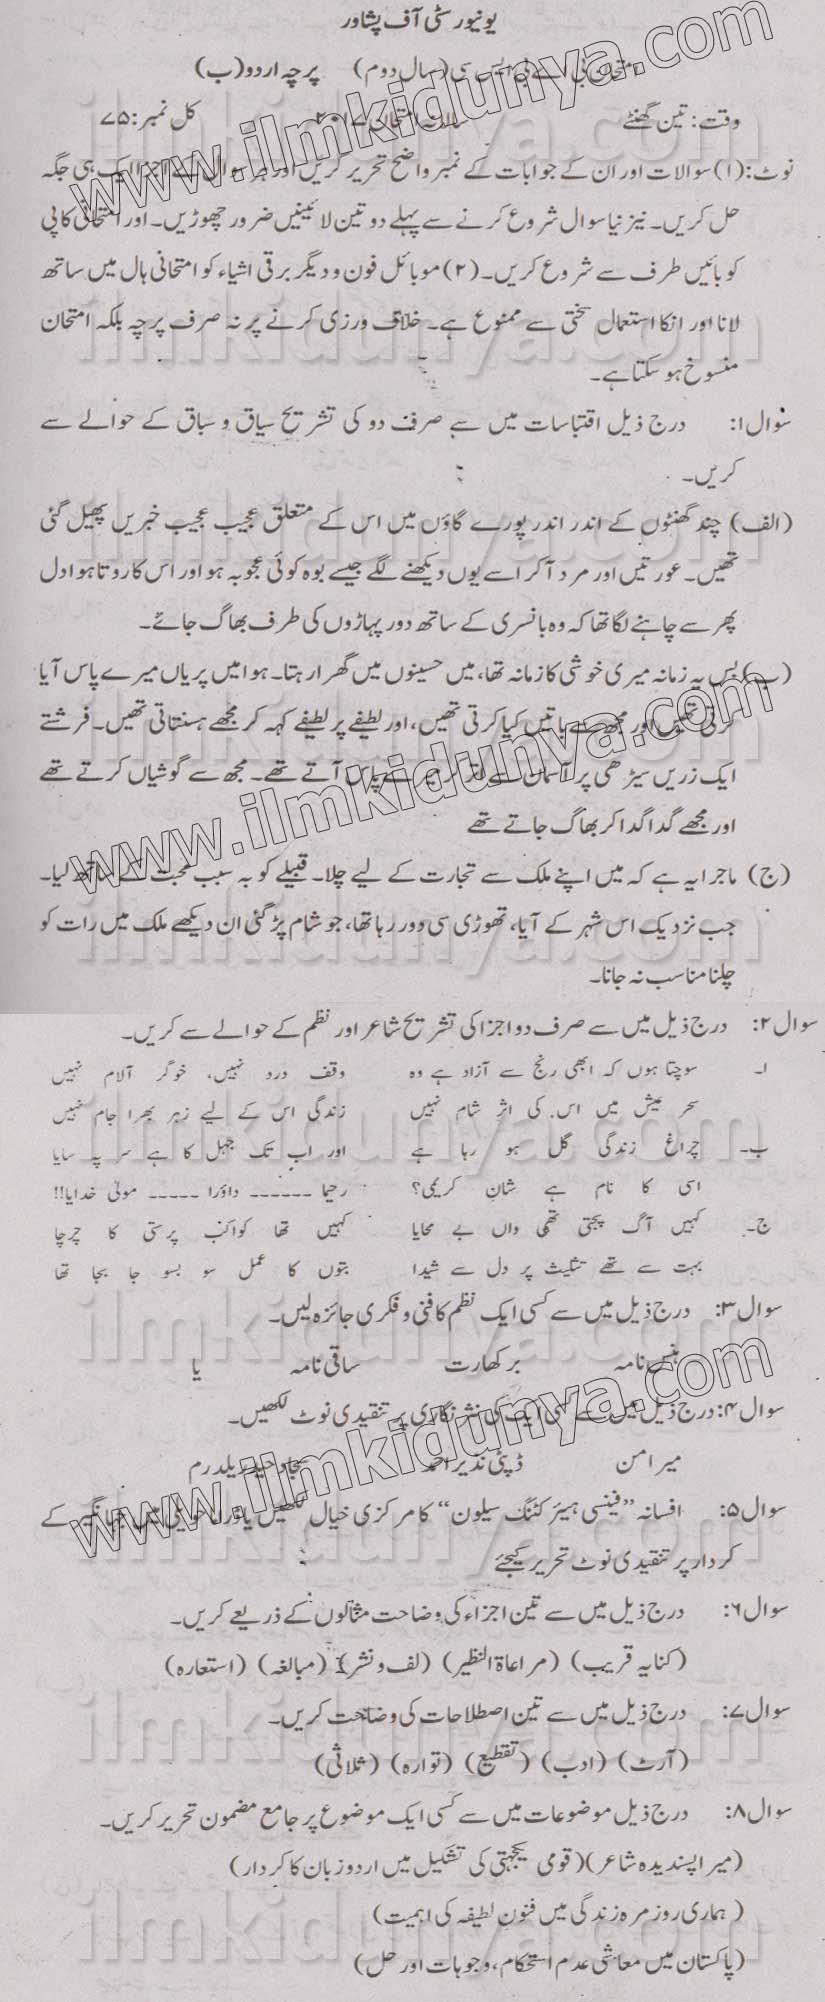 یونیورسٹی آف پشاور
امتحان بی اے بی ایس سی (سال دوم) پرچہ اردو (ب)
وقت: تین گھنٹے سالانہ امتحان ۲۰۱۷ کل نمبر: ۷۵
نوٹ: (۱) سوالات اور ان کے جوابات کے نمبر واضح تحریر کریں اور ہر سوال کے اجزا ایک ہی جگہ
حل کریں۔ نیز نیا سوال شروع کرنے سے پہلے دو تین لائینیں ضرور چھوڑیں۔ اور امتحانی کاپی
کو بائیں طرف سے شروع کریں۔ (۲) موبائل فون و دیگر برقی اشیاء کو امتحانی ہال میں ساتھ
لانا اور انکا استعمال سختی سے ممنوع ہے۔ خلاف ورزی کرنے پر نہ صرف پرچہ بلکہ امتحان
منسوخ ہو سکتا ہے۔
سوال ۱: درج ذیل اقتباسات میں سے صرف دو کی تشریح سیاق و سباق کے حوالے سے
کریں۔
(الف) چند گھنٹوں کے اندر اندر پورے گاؤں میں اس کے متعلق عجیب عجیب خبریں پھیل گئی
تھیں۔ عورتیں اور مرد آ کر اسے یوں دیکھنے لگے جیسے بوہ کوئی عجوبہ ہو اور اس کا روتا ہوا دل
پھر سے چاہنے لگا تھا کہ وہ بانسری کے ساتھ دور پہاڑوں کی طرف بھاگ جائے۔
(ب) بس یہ زمانہ میری خوشی کا زمانہ تھا، میں حسینوں میں گھرا رہتا۔ ہوا میں پریاں میرے پاس آیا
کرتی تھیں اور مجھ سے باتیں کیا کرتی تھیں، اور لطیفے پر لطیفے کہہ کر مجھے ہنساتی تھیں۔ فرشتے
ایک زریں سیڑھی پر آسمان سے اتر کر میرے پاس آتے تھے۔ مجھ سے گوشیاں کرتے تھے
اور مجھے گدا گدا کر بھاگ جاتے تھے
(ج) ماجرا یہ ہے کہ میں اپنے ملک سے تجارت کے لیے چلا۔ قبیلے کو بہ سبب محبت کے ساتھ لیا۔
جب نزدیک اس شہر کے آیا، تھوڑی سی دور رہا تھا، جو شام پڑ گئی ان دیکھے ملک میں رات کو
چلنا مناسب نہ جانا۔
سوال ۲: درج ذیل میں سے صرف دو اجزا کی تشریح شاعر اور نظم کے حوالے سے کریں۔
ا۔ سوچتا ہوں کہ ابھی رنج سے آزاد ہے وہ وقف درد نہیں، خوگر آلام نہیں
سحر عیش میں اس کی اثر شام نہیں زندگی اس کے لیے زہر بھرا جام نہیں
ب۔ چراغ زندگی گل ہو رہا ہے اور اب تک جہل کا ہے سر پہ سایا
اسی کا نام ہے شان کریمی؟ رحیما ------ داورا ----- مولیٰ خدایا!!
ج۔ کہیں آگ پجتی تھی واں بے محابا کہیں تھا کواکب پرستی کا چرچا
بہت سے تھے تثلیث پر دل سے شیدا بتوں کا عمل سو بسو جا بجا تھا
سوال ۳: درج ذیل میں سے کسی ایک نظم کا فنی و فکری جائزہ لیں۔
ہنس نامہ برکھارت ساقی نامہ یا
سوال ۴: درج ذیل میں سے کسی ایک کی نثر نگاری پر تنقیدی نوٹ لکھیں۔
میر امن ڈپٹی نذیر احمد سجاد حیدر یلدرم
سوال ۵: افسانہ "فینسی ہیئر کٹنگ سیلون" کا مرکزی خیال لکھیں یا ڈراما حویلی میں جہانگیر کے
کردار پر تنقیدی نوٹ تحریر کیجئے
سوال ۶: درج ذیل میں سے تین اجزاء کی وضاحت مثالوں کے ذریعے کریں۔
(کنایہ قریب) (مراعاۃ النظیر) (لف و نشر) (مبالغہ) (استعارہ)
سوال ۷: درج ذیل میں سے تین اصطلاحات کی وضاحت کریں۔
(آرٹ) (ادب) (تقطیع) (توارہ) (ثلاثی)
سوال ۸: درج ذیل موضوعات میں سے کسی ایک موضوع پر جامع مضمون تحریر کریں۔
(میرا پسندیدہ شاعر) (قومی یکجہتی کی تشکیل میں اردو زبان کا کردار)
(ہماری روزمرہ زندگی میں فنون لطیفہ کی اہمیت)
(پاکستان میں معاشی عدم استحکام، وجوہات اور حل)
www.ilmkidunya.com
www.ilmkidunya.com
www.ilmkidunya.com